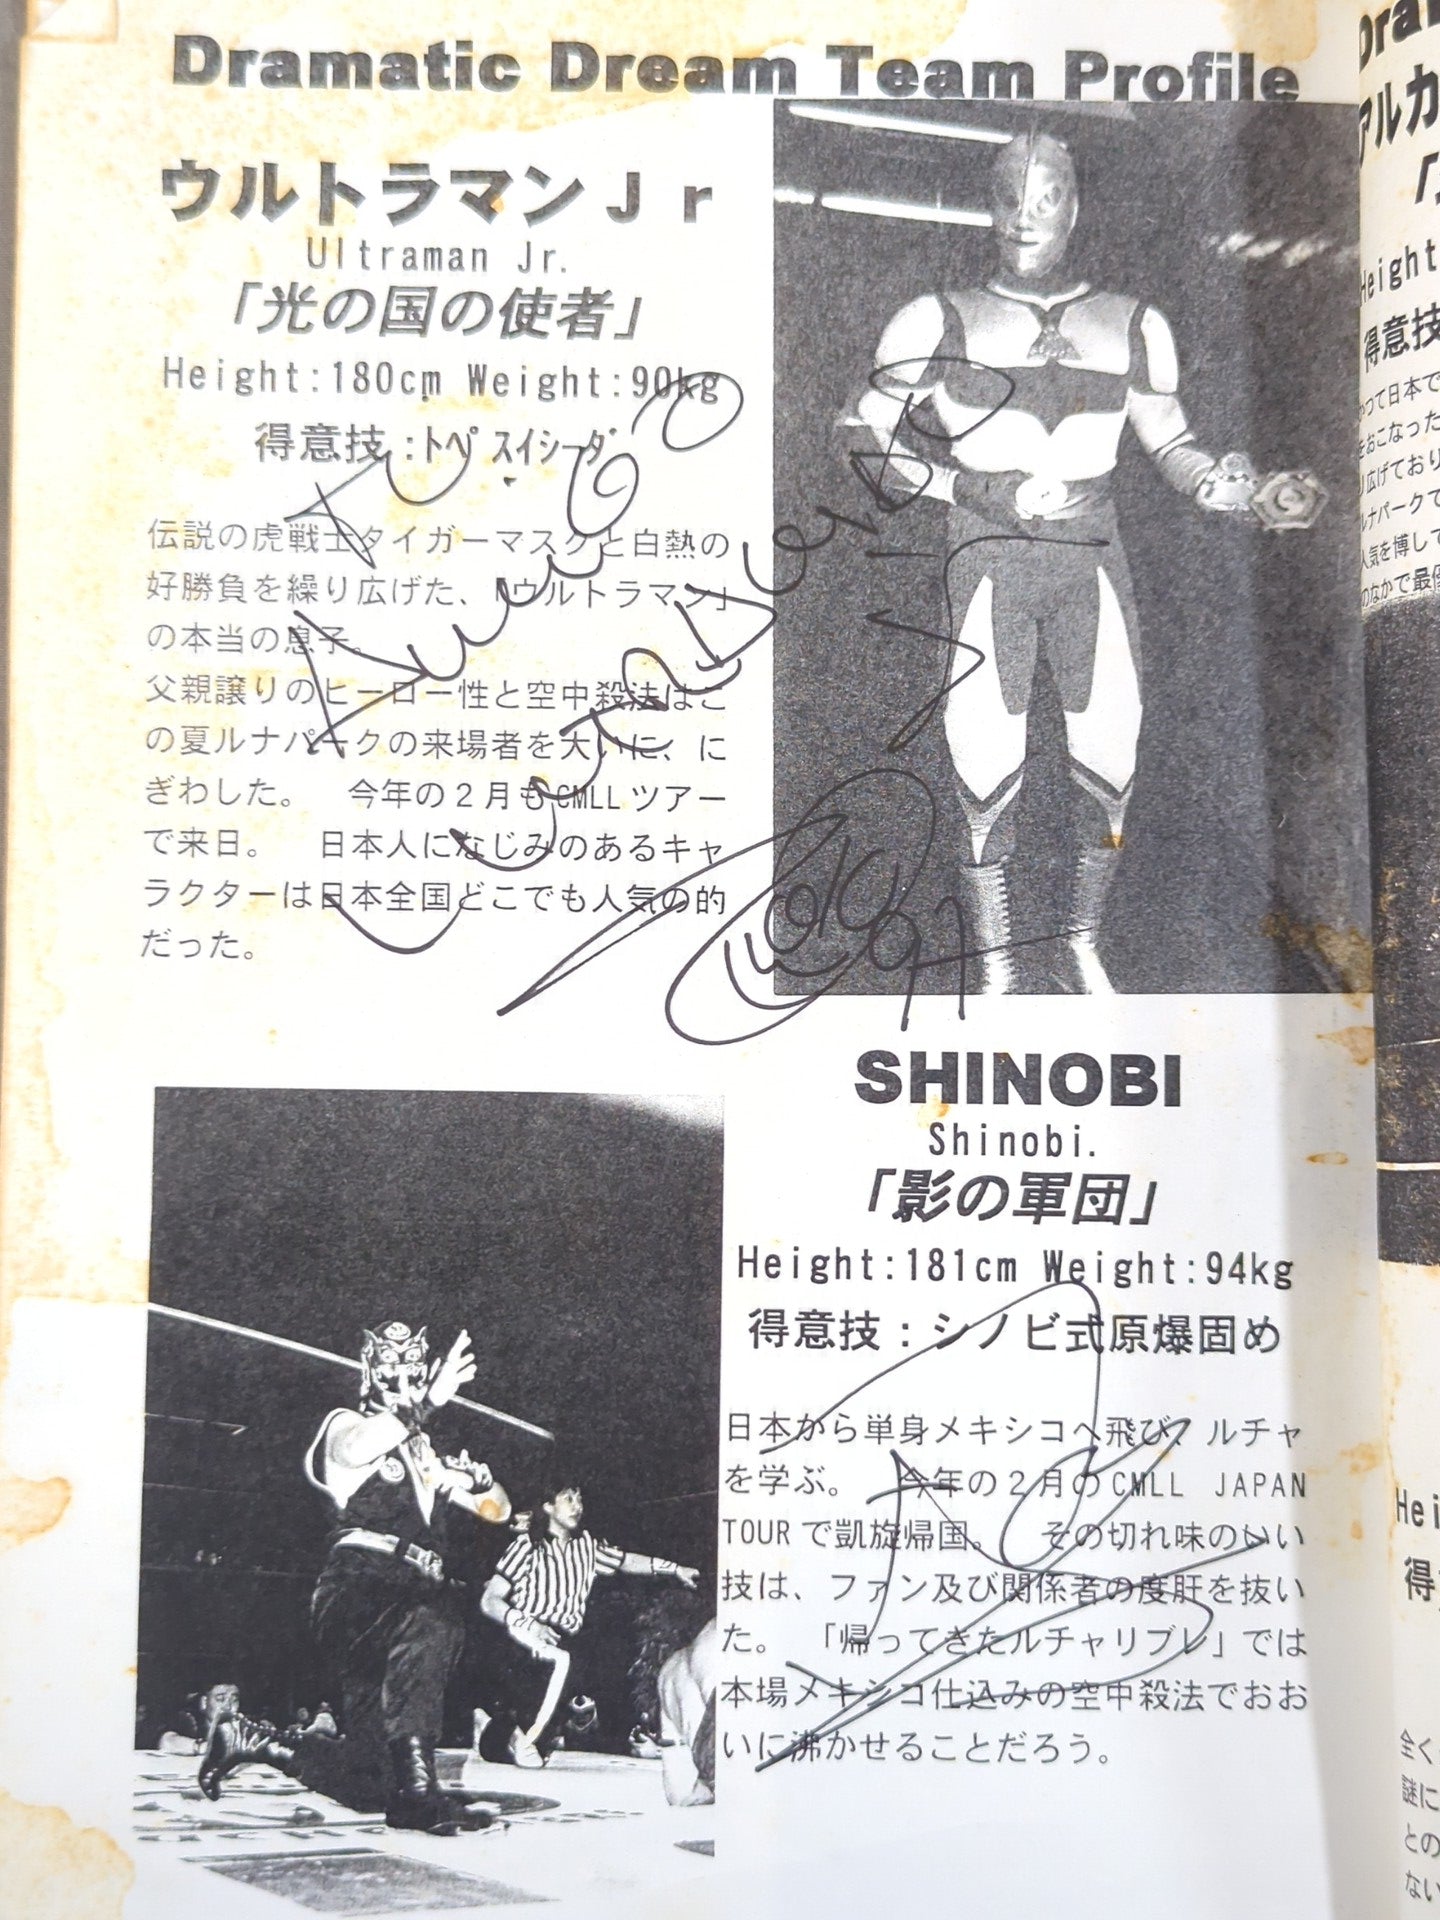 Dramatic Dream Team Profile
ウルトラマンJr
Ultraman Jr.
「光の国の使者」
Height:180cm Weight:90kg
得意技:トペ スイシーダ
伝説の虎戦士タイガーマスクと白熱の
好勝負を繰り広げた、『ウルトラマン』
の本当の息子。
父親譲りのヒーロー性と空中殺法はこ
の夏ルナパークの来場者を大いに、に
ぎわした。 今年の2月もCMLLツアー
で来日。 日本人になじみのあるキャ
ラクターは日本全国どこでも人気の的
だった。
SHINOBI
Shinobi.
「影の軍団」
Height:181cm Weight:94kg
得意技:シノビ式原爆固め
日本から単身メキシコへ飛び、ルチャ
を学ぶ。 今年の2月のCMLL JAPAN
TOURで凱旋帰国。 その切れ味のいい
技は、ファン及び関係者の度肝を抜い
た。 「帰ってきたルチャリブレ」では
本場メキシコ仕込みの空中殺法でおお
いに沸かせることだろう。
アルカ
Height
得意技
かつて日本で
をおこなった
り広げており
ルナパークで
人気を博して
のなかで最優
Hei
得
全く
謎に
との
ない